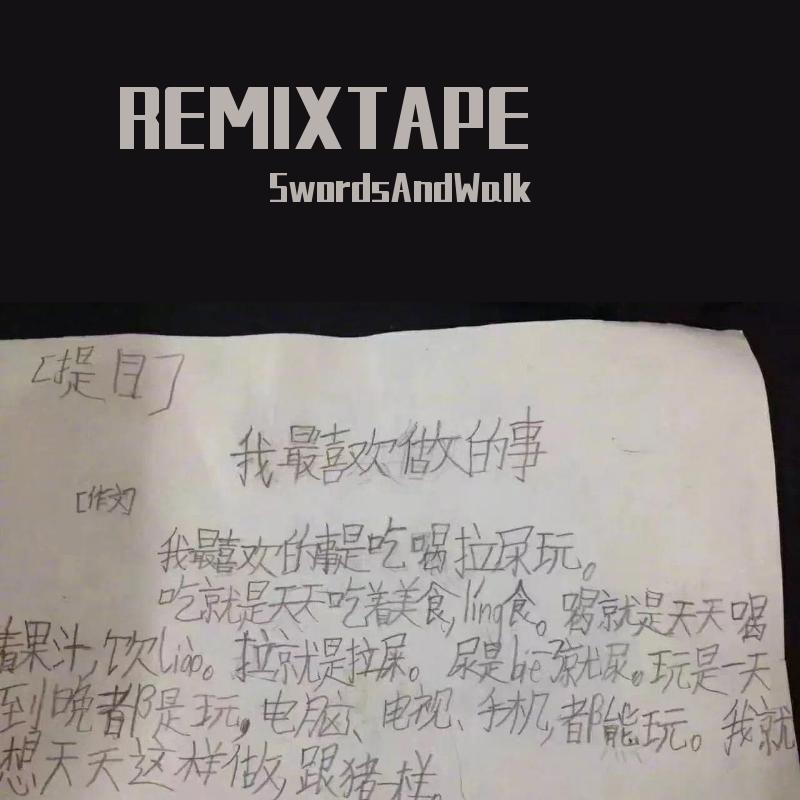 REMIXTAPE
SwordsAndWalk
[提目]
我最喜欢做的事
[作文]
我最喜欢的事是吃喝拉尿玩。
吃就是天天吃着美食,ling食。喝就是天天喝
着果汁,饮liào。拉就是拉屎。尿是biē了就尿。玩是一天
到晚都是玩,电脑、电视、手机,都能玩。我就
想天天这样做,跟猪一样。